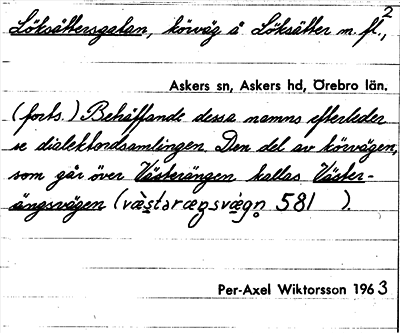 2
Löksättersgatan, körväg å Löksätter m. fl.,
Askers sn, Askers hd, Örebro län.
(forts.) Beträffande dessa namns efterleder
se dialektordsamlingen. Den del av körvägen,
som går över Västerängen kallas Väster-
ängsvägen (væ̀stəræŋsvæ̀gn̥ 581 ).
Per-Axel Wiktorsson 1963